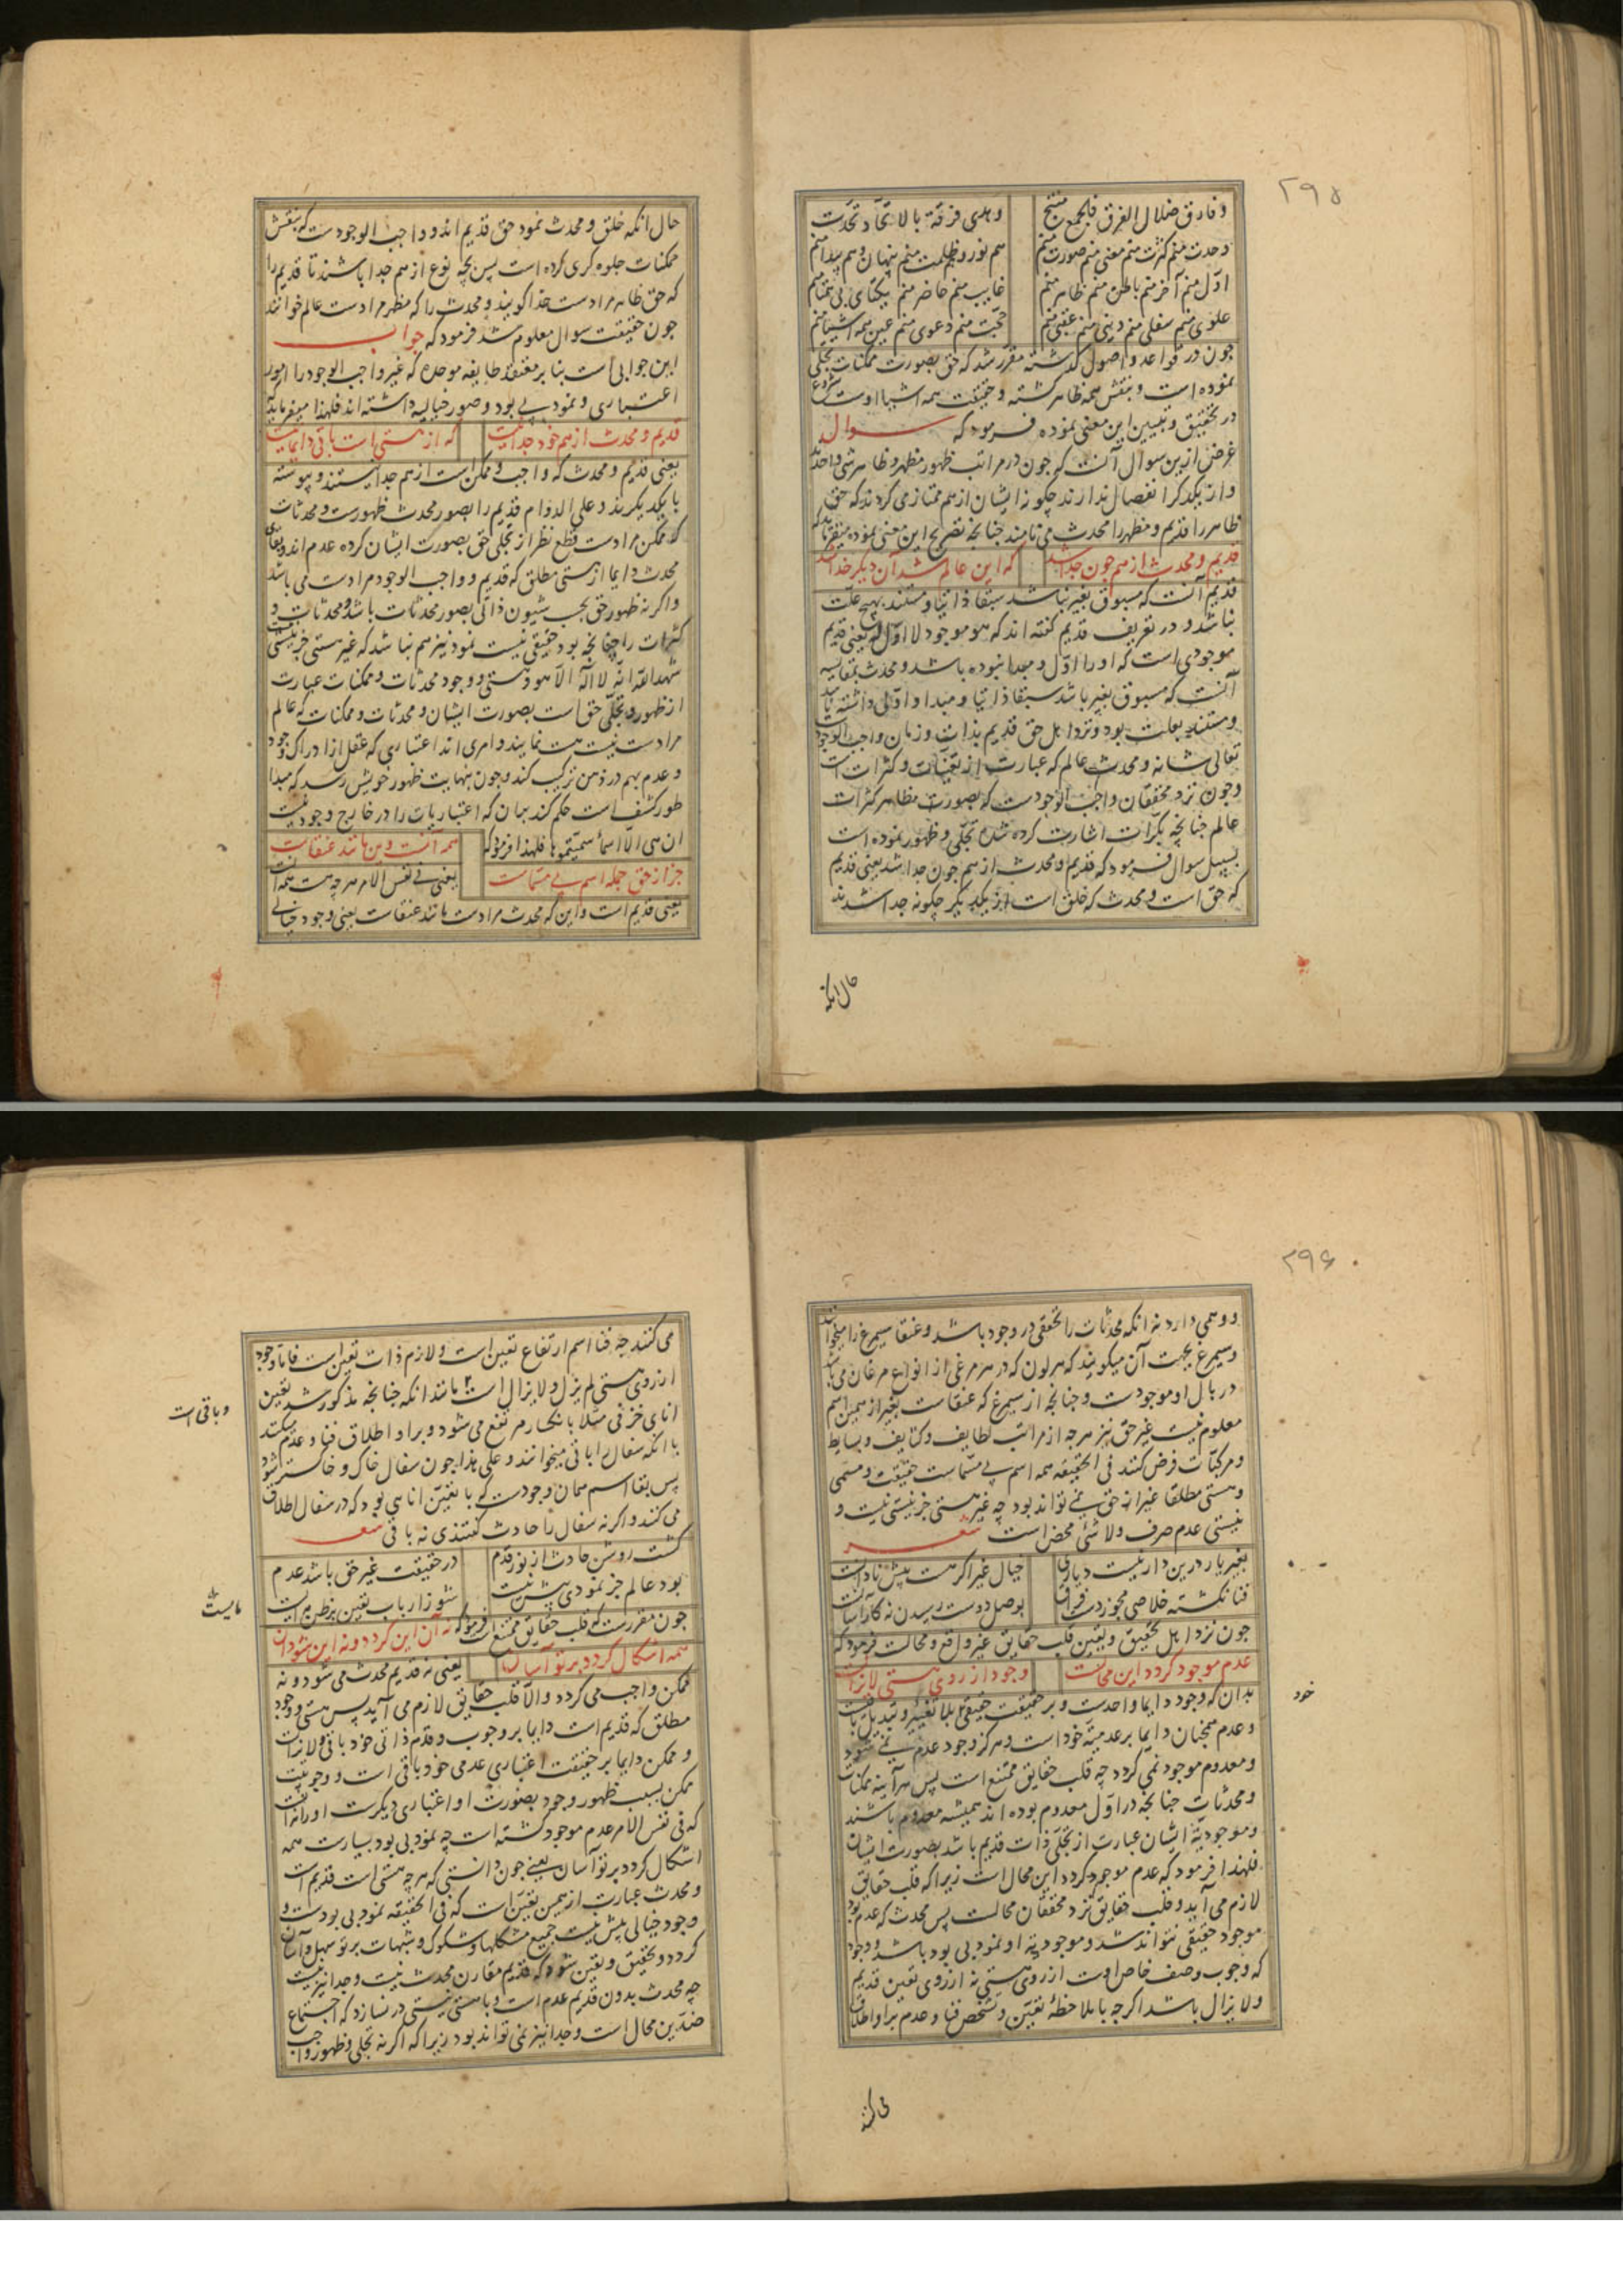 ۲۹۵
و فارق ضلال الفرق فالجمع منتج وهدی فرقة بالاتحاد تحدت
وحدت منم کثرت منم معنی منم صورت منم هم نور و هم ظلمت منم پنهان و هم پیدا منم
اول منم آخر منم باطن منم ظاهر منم غایب منم حاضر منم یکتای بی همتا منم
علوی منم سفلی منم دینی منم عقبی منم حجت منم دعوی منم عین همه اشیا منم
چون در قواعد و اصول گذشته مقرر شد که حق بصورت ممکنات تجلی
نموده است و بنقش همه ظاهر گشته و حقیقت همه اشیا اوست شروع
در تحقیق و تبیین این معنی نموده فرمود که سوال
غرض ازین سوال آنست که چون در مراتب ظهور مظهر و ظاهر شی واحدند
و از یکدیگر انفصال ندارند چگونه ایشان از هم ممتاز می گردند که حق
ظاهر را قدیم و مظهر را محدث می نامند چنانچه تصریح این معنی نموده میفرماید که
قدیم و محدث از هم چون جدا شد که این عالم شد آن دیگر خدا شد
قدیم آنست که مسبوق بغیر نباشد سبقا ذاتیا و مستند بهیچ علت
نباشد و در تعریف قدیم گفته اند که هو موجود لا اول له یعنی قدیم
موجودی است که او را اول و مبدا نبوده باشد و محدث بمقابسه
آنست که مسبوق بغیر باشد سبقا ذاتیا و مبدا و اولی داشته باشد
و مستند بعلت بود و نزد اهل حق قدیم بذات و زمان واجب الوجود
تعالی شانه و محدث عالم که عبارت از تعینات و کثرات است
و چون نزد محققان واجب الوجودست که بصورت مظاهر کثرات
عالم چنانچه بکرات اشارت کرده شد تجلی و ظهور نموده است
بسبیل سوال فرمود که قدیم و محدث از هم چون جدا شد یعنی قدیم
که حق است و محدث که خلق است از یکدیگر چگونه جدا شدند
حال انکه
حال انکه خلق و محدث نمود حق قدیم اند و واجب الوجودست که بنقش
ممکنات جلوه گری کرده است پس بچه نوع از هم جدا باشند تا قدیم را
که حق ظاهر مرادست خدا گویند و محدث را که مظهر مرادست عالم خوانند
چون حقیقت سوال معلوم شد فرمود که جواب
این جوابی است بنا بر معتقد طایفه موحده که غیر واجب الوجود را امور
اعتباری و نمود بی بود و صور خیالیه داشته اند فلهذا میفرماید که
قدیم و محدث از هم خود جدا نیست که از هستی است باقی دایما نیست
یعنی قدیم و محدث که واجب و ممکن است از هم جدا نیستند و پیوسته
با یکدیگرند و علی الدوام قدیم را بصور محدث ظهورست و محدثات
که ممکن مرادست قطع نظر از تجلی حق بصورت ایشان کرده عدم اند و بقای
محدث دایما از هستی مطلق که قدیم و واجب الوجود مرادست می باشد
و اگر نه ظهور حق بحسب شیون ذاتی بصور محدثات باشد و محدثات و
کثرات را چنانچه بود حقیقی نیست نمود نیز هم نباشد که غیر هستی جز نیستی نیست
شهد الله انه لا اله الا هو و هستی و وجود محدثات و ممکنات عبارت
از ظهور و تجلی حق است بصورت ایشان و محدثات و ممکنات که عالم
مرادست نیست هست نمایند و امری اند اعتباری که عقل از ادراک وجود
و عدم بهم در ذهن ترکیب کند و چون بنهایت ظهور خویش رسد که مبدا
طور کشف است حکم کند بان که اعتباریات را در خارج وجود نیست
ان هی الا اسماء سمیتموها فلهذا فرمود که همه آنست وین مانند عنقاست
جز از حق جمله اسم بی مسماست یعنی فی نفس الامر هرچه هست همه آنست
یعنی قدیم است و این که محدث مرادست مانند عنقاست یعنی وجود خیالی
۲۹۶
و وهمی دارد نه انکه محدثات را تحققی در وجود باشد و عنقا سیمرغ را میخوانند
و سیمرغ بجهت آن میگویند که هر لون که در هر مرغی از انواع مرغان می باشد
در بال او موجودست و چنانچه از سیمرغ که عنقاست بغیر از همین اسم
معلوم نیست غیر حق نیز هرچه از مراتب لطایف و کثایف و بسایط
و مرکبات فرض کنند فی الحقیقه همه اسم بی مسماست حقیقت و مسمی
و هستی مطلقا غیر از حق نمی تواند بود چه غیر هستی جز نیستی نیست و
نیستی عدم صرف و لاشئ محض است شعر
بغیر یار درین دار نیست دیاری خیال غیر اگر هست پیش نادانست
فنا نگشته خلاصی مجو ز درد فراق بوصل دوست رسیدن نه کار آسانست
چون نزد اهل تحقیق و یقین قلب حقایق غیر واقع و محالست فرمود که
عدم موجود گردد این محالست وجود از روی هستی لایزالست
بدان که وجود دایما واحدست و بر حقیقت حقیقی بلا تغییر و تبدیل ثابت
خود
و عدم همچنان دایما بر عدمیة خود است و هرگز وجود عدم نمی شود
و معدوم موجود نمی گردد چه قلب حقایق ممتنع است پس هر آینه ممکنات
و محدثات چنانچه در اول معدوم بوده اند همیشه معدوم باشند
و موجودیة ایشان عبارت از تجلی ذات قدیم باشد بصورت ایشان
فلهذا فرمود که عدم موجود گردد این محال است زیرا که قلب حقایق
لازم می آید و قلب حقایق نزد محققان محالست پس محدث که عدم بود
موجود حقیقی نتواند شد و موجودیة او نمود بی بود باشد و وجود
که وجوب وصف خاص اوست از روی هستی نه از روی تعین قدیم
و لایزال باشد اگرچه با ملاحظه تعین و تشخص فنا و عدم بر او اطلاق
می کنند
می کنند چه فنا اسم ارتفاع تعین است و لازم ذات تعین است فاما وجود
از روی هستی لم یزل و لایزال است مانند انکه چنانچه مذکور شد تعین
و باقی است
انای خزفی مثلا بانکسار مرتفع می شود و بر او اطلاق فنا و عدم میکنند
با انکه سفال را باقی میخوانند و علی هذا چون سفال خاک و خاکستر شود
پس بقا اسم همان وجودست که با تعین انایی بود که در سفال اطلاق
می کنند و اگر نه سفال را حادث گفتندی نه باقی شعر
گشت روشن حادث از نور قدم در حقیقت غیر حق باشد عدم
بود عالم جز نمودی بیش نیست شو ز ارباب یقین بر ظن مایست
مایست
چون مقررست که قلب حقایق ممتنع است فرمود که نه آن این گردد و نه این شود آن
همه اشکال گردد بر تو آسان یعنی نه قدیم محدث می شود و نه
ممکن واجب می گردد والا قلب حقایق لازم می آید پس هستی وجود
مطلق که قدیم است دایما بر وجوب و قدم ذاتی خود باقی و لایزالست
و ممکن دایما بر حقیقت اعتباری عدمی خود باقی است و وجودیت
ممکن بسبب ظهور وجود بصورت او اعتباری دیگرست او را نه آنست
که فی نفس الامر عدم موجود گشته است چه نمود بی بود بسیارست همه
اشکال گردد بر تو آسان یعنی چون دانستی که هرچه هستی است قدیم است
و محدث عبارت از همین تعین است که فی الحقیقه نمود بی بودست و
وجود خیالی بیش نیست جمیع مشکلها و شکوک و شبهات بر تو سهل و آسان
گردد و بتحقیق و یقین شود که قدیم مقارن محدث نیست و جدا نیز نیست
چه محدث بدون قدیم عدم است و با هستی نیستی در نسازد که اجتماع
ضدین محال است و جدا نیز نمی تواند بود زیرا که اگر نه تجلی و ظهور واجب